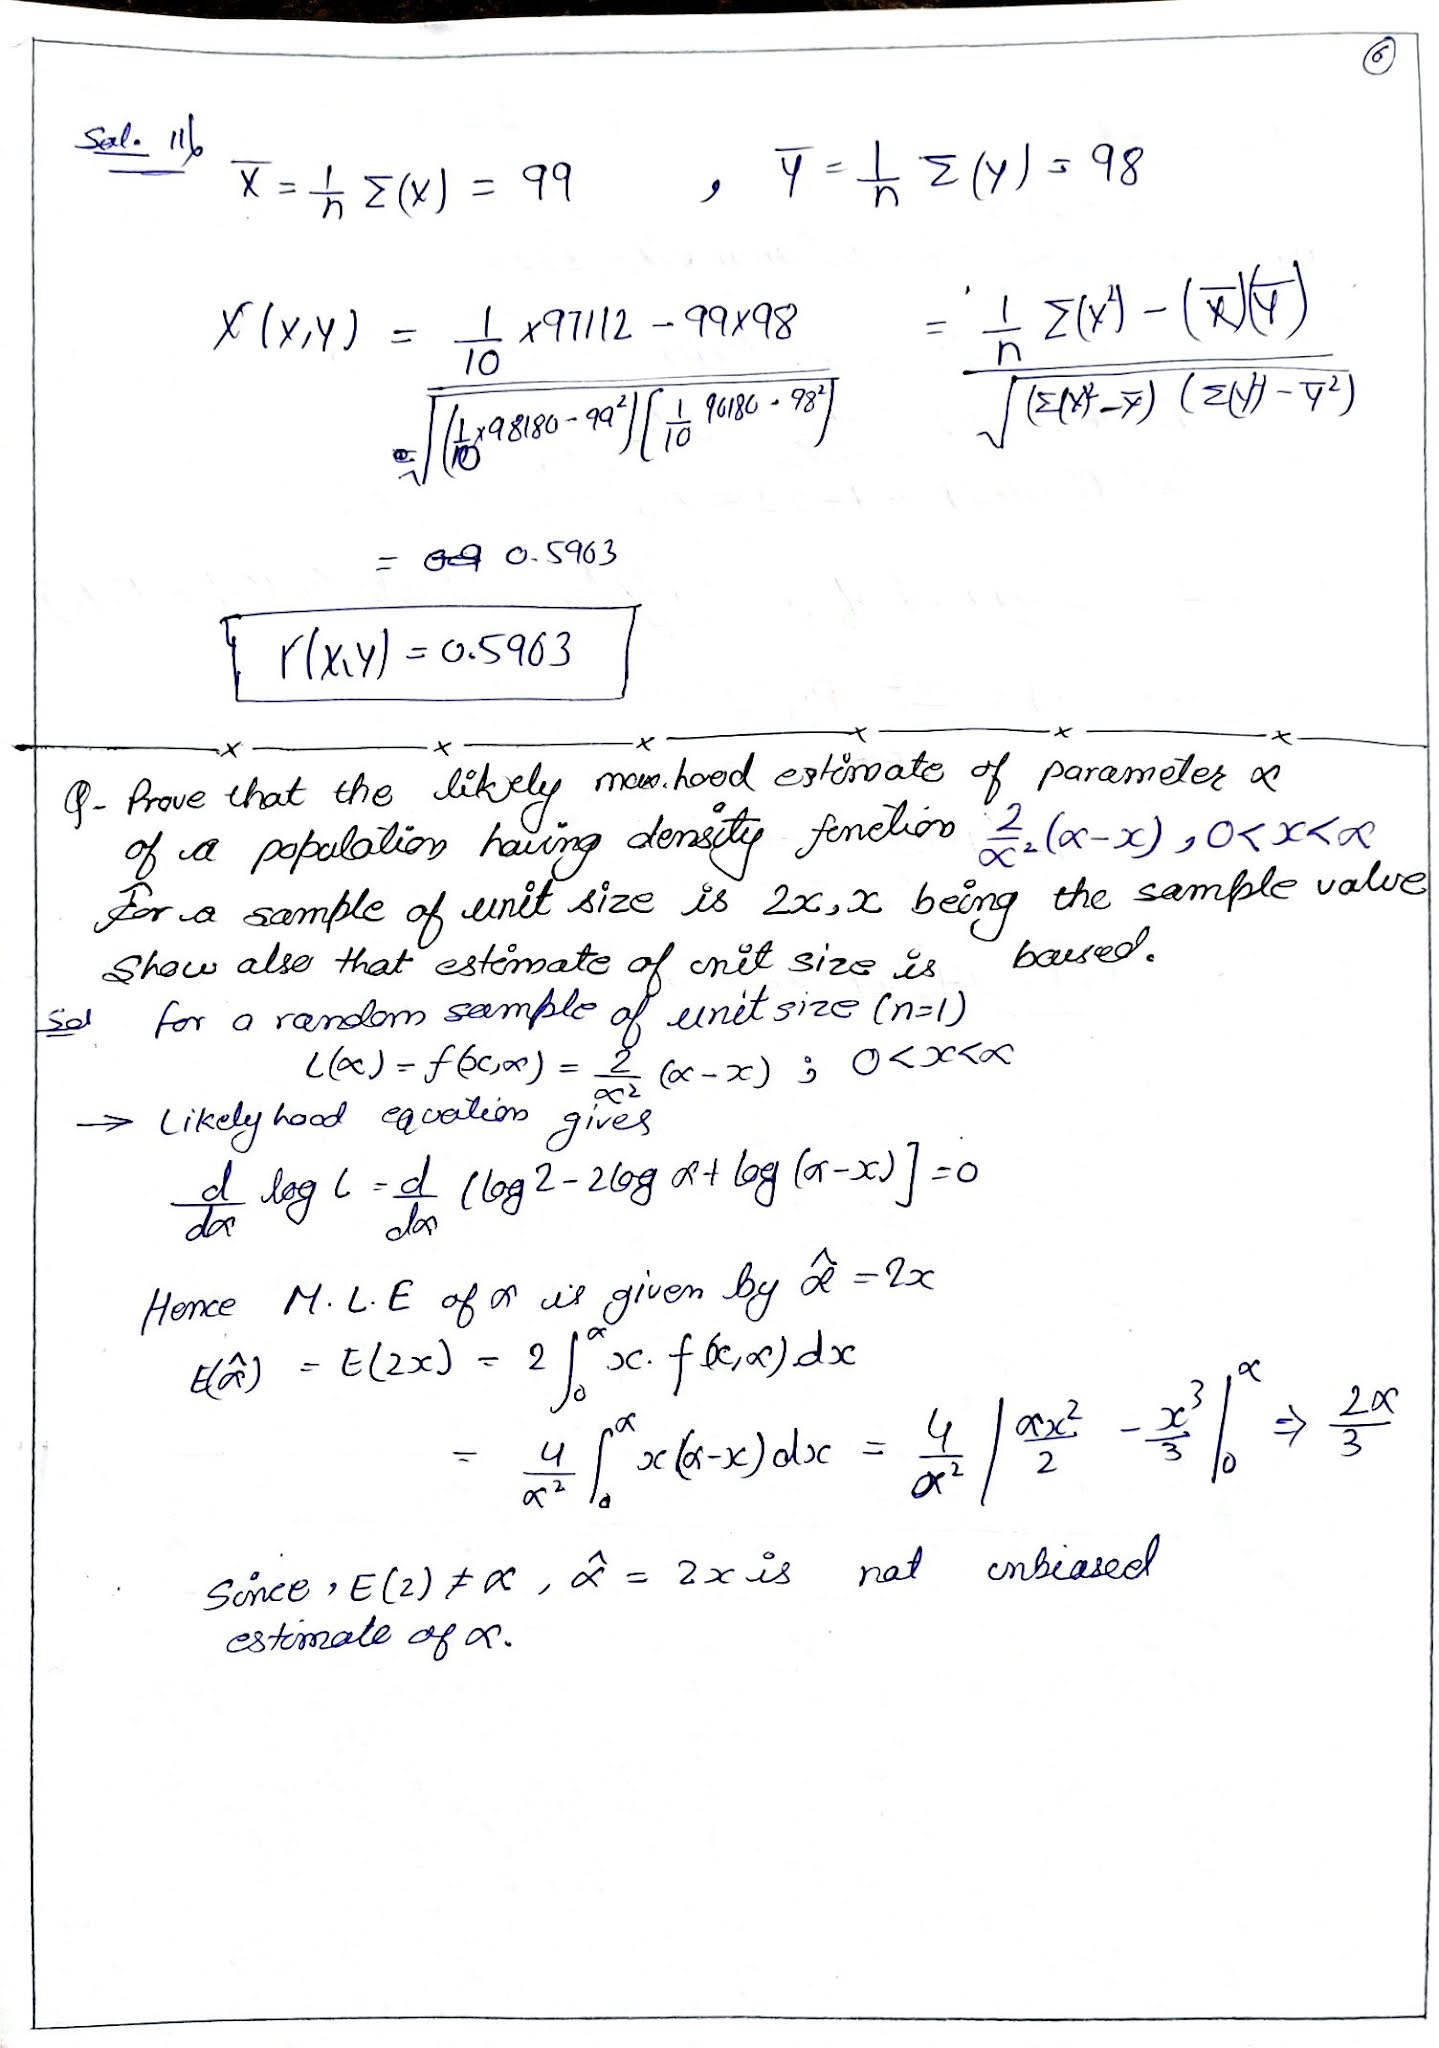 6
Sol. 11b
X̅ = 1/n Σ(X) = 99 , Y̅ = 1/n Σ(Y) = 98
r(X,Y) = (1/10 x97112 - 99x98) / √((1/10 x98180 - 99²)(1/10 96180 - 98²)) = (1/n Σ(X²) - (X̅)(Y̅)) / √((Σ(X)² - X̅) (Σ(Y²) - Y̅²))
= 0.5963
r(X,Y) = 0.5963
x x x x x x
Q- Prove that the likely hood estimate of parameter α
of a population having density function 2/α² (α-x) , 0<x<α
For a sample of unit size is 2x, x being the sample value
Show also that estimate of unit size is baised.
Sol for a random sample of unit size (n=1)
L(α) = f(x,α) = 2/α² (α-x) ; 0<x<α
→ Likelyhood equation gives
d/dα log L = d/dα (log 2 - 2 log α + log (α-x)] = 0
Hence M.L.E of α is given by α̂ = 2x
E(α̂) = E(2x) = 2 ∫₀^α x. f(x,α) dx
= 4/α² ∫₀^α x(α-x) dx = 4/α² | αx²/2 - x³/3 |₀^α ⇒ 2α/3
Since, E(2) ≠ α , α̂ = 2x is not unbiased
estimate of α.